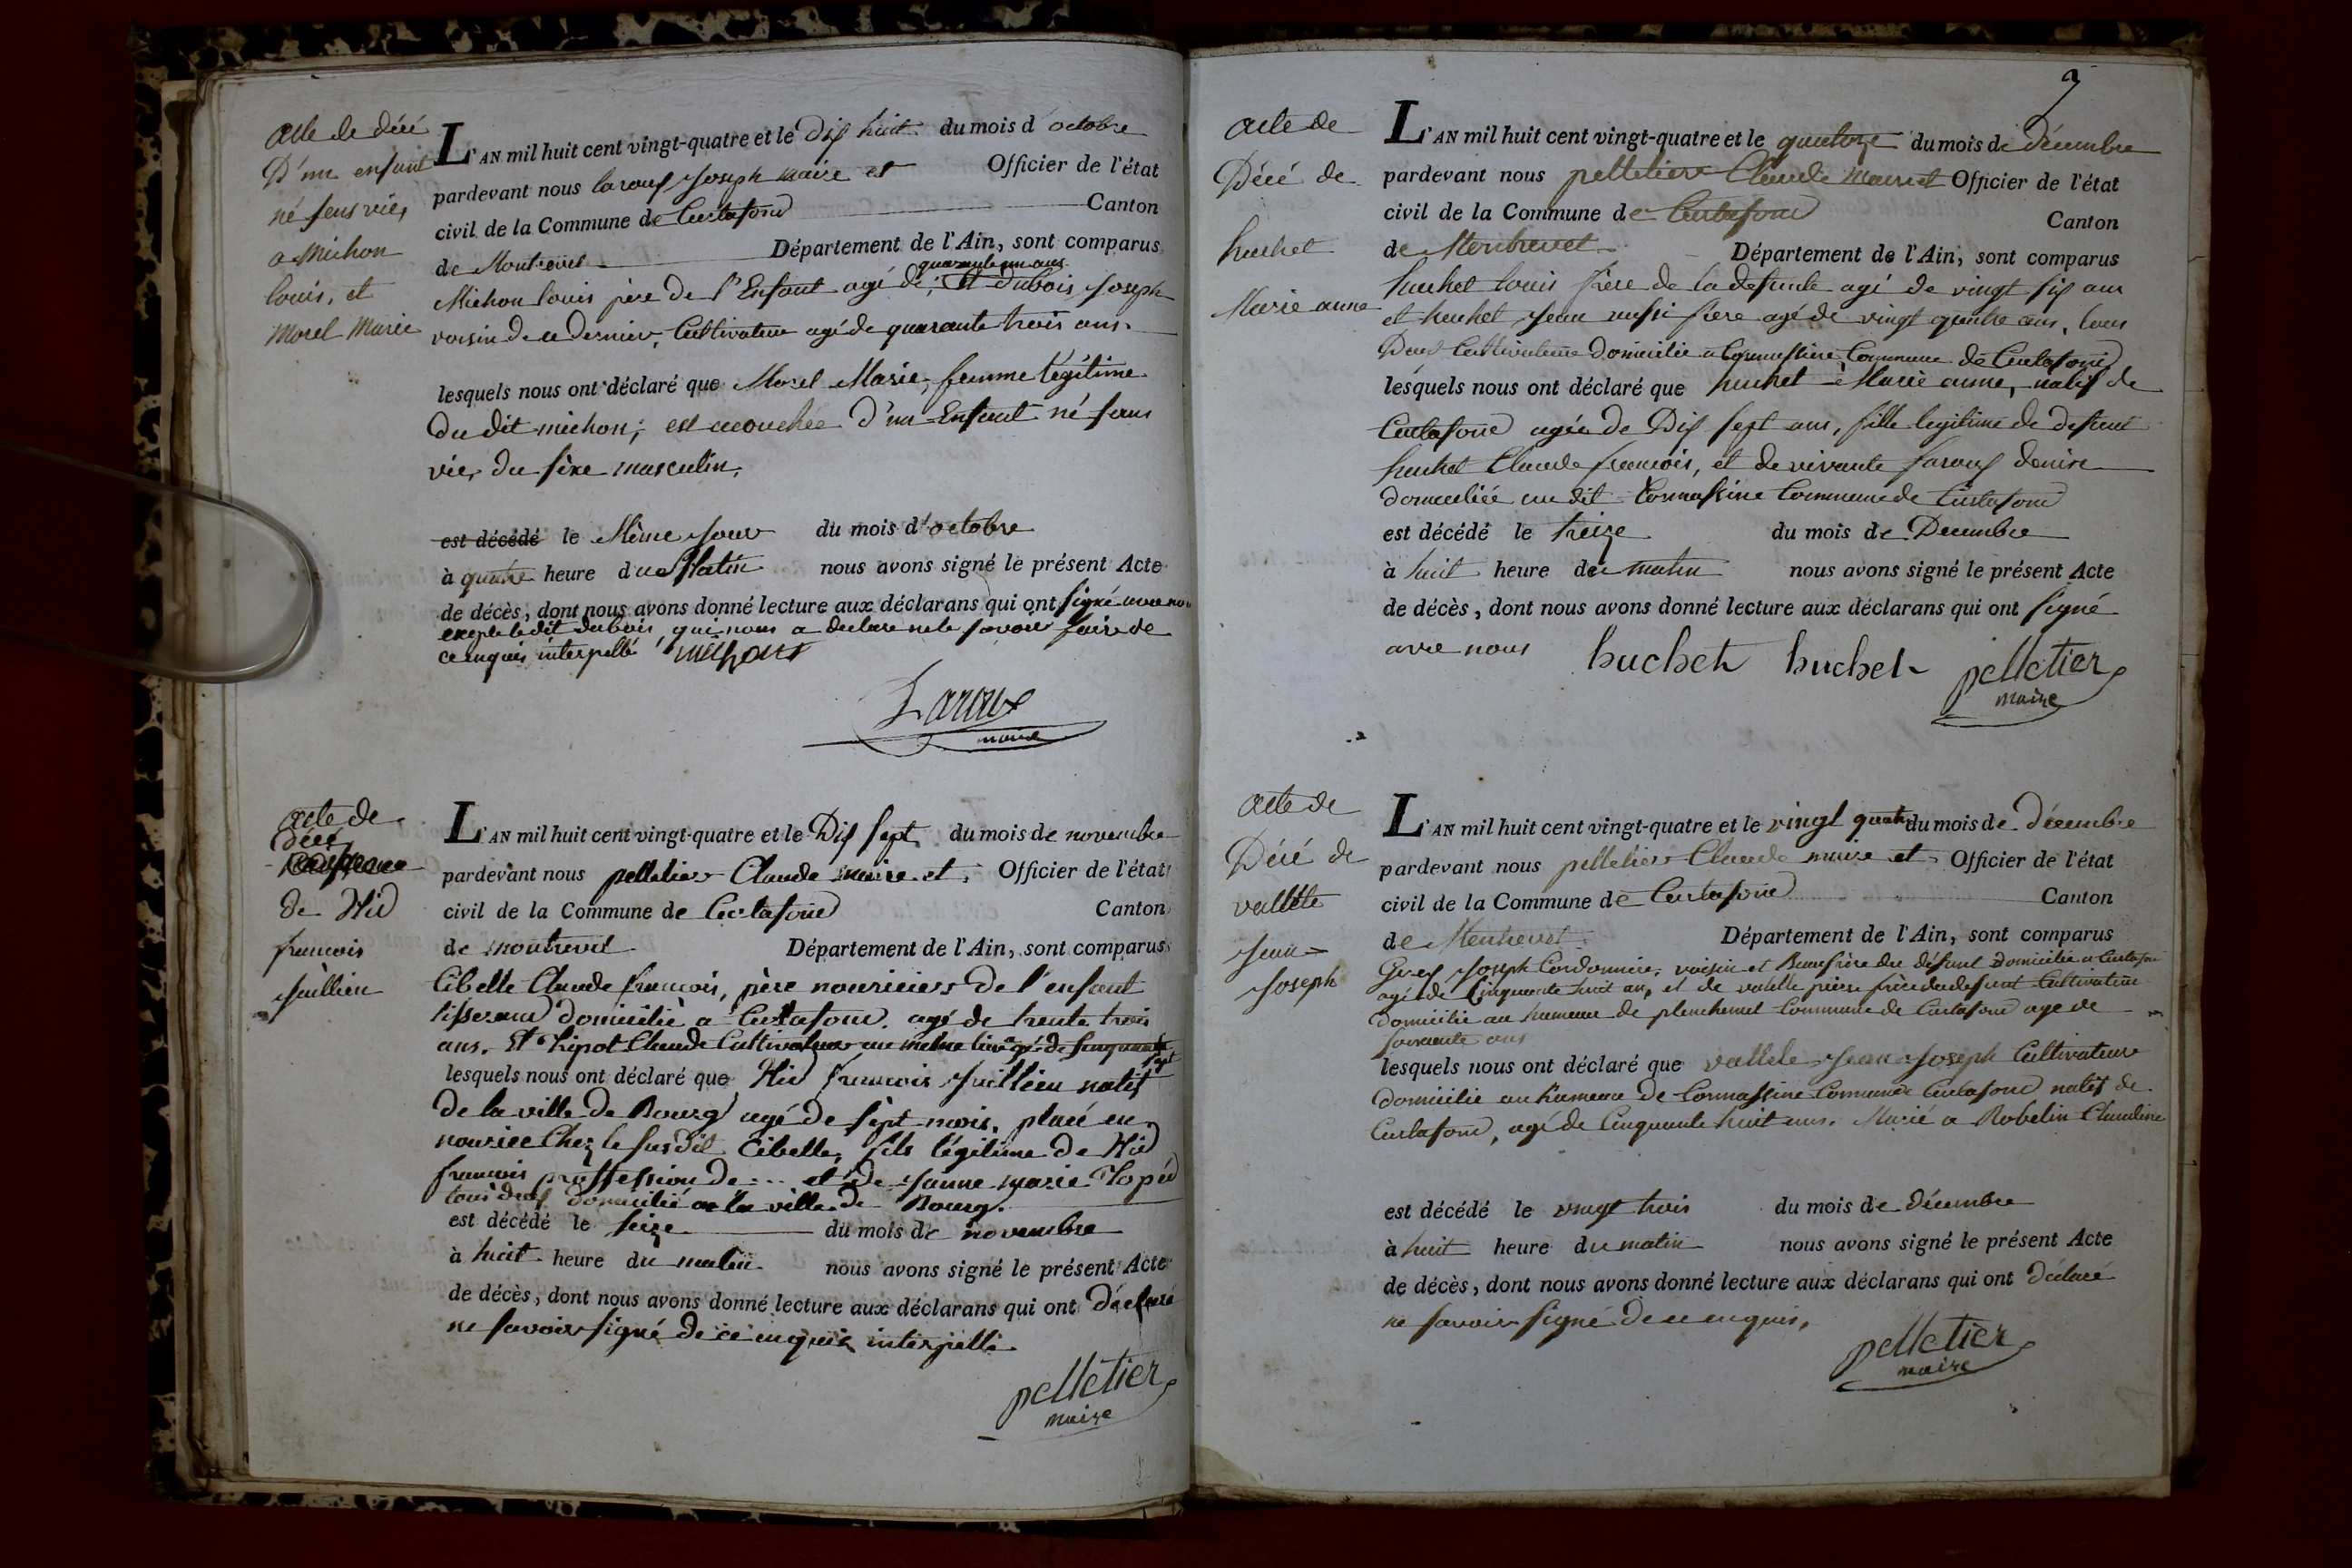 acte de décé
D'un enfant
né sens vies
a Michon
louis, et
Morel Marie
L'AN mil huit cent vingt-quatre et le Dix huit du mois d'octobre
pardevant nous laroux Joseph maire et Officier de l'état
civil de la Commune de Curtafond Canton
de Montrevel Département de l'Ain, sont comparus
quarante un ans
Michon louis père de l'Enfant agé de, Et Dubois Joseph
voisin de ce dernier, Cultivateur agé de quarante trois ans.
lesquels nous ont déclaré que Morel Marie, femme légitime
du dit michon; est accouchée D'un Enfant né sans
vies du sèxe masculin,
est décédé le Même Jour du mois d'octobre
à quatre heure du Matin nous avons signé le présent Acte
de décès, dont nous avons donné lecture aux déclarans qui ont signé avec nous
excepte le dit Dubois, qui nous a declare ne le savoir faire de
ce enquis interpellé michons
Laroux
maire
acte de
Décé
de Hid
francois
Juillien
L'AN mil huit cent vingt-quatre et le Dix sept du mois de novembre
pardevant nous pelletier Claude maire et Officier de l'état
civil de la Commune de Curtafond Canton
de montrevel Département de l'Ain, sont comparus
Cibelle Claude francois, père nouriciers de l'enfant
tisserand domicilié a Curtafond. agé de trente trois
ans. Et Tripot Claude Cultivateur au même lieu agé de sinquante
sept
lesquels nous ont déclaré que Hid francois Juillien natif
de la ville de Bourg agé de sept mois, placé en
nourice Chez le susdit Cibelle, fils légitime de Hid
francois proffession de ... et de Janne marie Topéd
tous deux domicilié a la ville de Bourg.
est décédé le seize du mois de novembre
à huit heure du matin nous avons signé le présent Acte
de décès, dont nous avons donné lecture aux déclarans qui ont Déclaré
ne savoir signé de ce enquis interpellé
pelletier
maire
acte de
Décé de
huchet
Marie anne
L'AN mil huit cent vingt-quatre et le quatorze du mois de décembre
pardevant nous pelletier Claude maire et Officier de l'état
civil de la Commune de Curtafond Canton
de Montrevel Département de l'Ain, sont comparus
huchet louis frère de la defunte agé de vingt six ans
et huchet Jean aussi frere agé de vingt quatre ans, tous
Deux Cultivateur domicilié a Cormassine Commune de Curtafond
lesquels nous ont déclaré que huchet Marie anne, natif de
Curtafond agée de Dix sept ans, fille legitime de defunt
huchet Claude francois, et de vivante faroux denise
domiciliée au dit Cormassine Commune de Curtafond
est décédé le treize du mois de Decembre
à huit heure du matin nous avons signé le présent Acte
de décès, dont nous avons donné lecture aux déclarans qui ont signé
avec nous huchet huchet pelletier
maire
acte de
Décé de
valléte
Jean=
Joseph
L'AN mil huit cent vingt-quatre et le vingt quatre du mois de Décembre
pardevant nous pelletier Claude maire et Officier de l'état
civil de la Commune de Curtafond Canton
de Montrevel Département de l'Ain, sont comparus
Joseph Cordonnier, voisin et Beaufrère du défunt domicilié a Curtafond
agé de Cinquante huit ans, et de valette pierre frère du defunt Cultivateur
domicilié au hameau de planchemel Commune de Curtafond age de
soixante ans
lesquels nous ont déclaré que vallete Jean Joseph Cultivateur
domicilié au hameau de Cormassine Commune Curtafond natif de
Curtafond, agé de Cinquante huit ans. Marié a Robelin Claudine
est décédé le vingt trois du mois de décembre
à huit heure du matin nous avons signé le présent Acte
de décès, dont nous avons donné lecture aux déclarans qui ont déclaré
ne savoir signé de ce enquis,
pelletier
maire